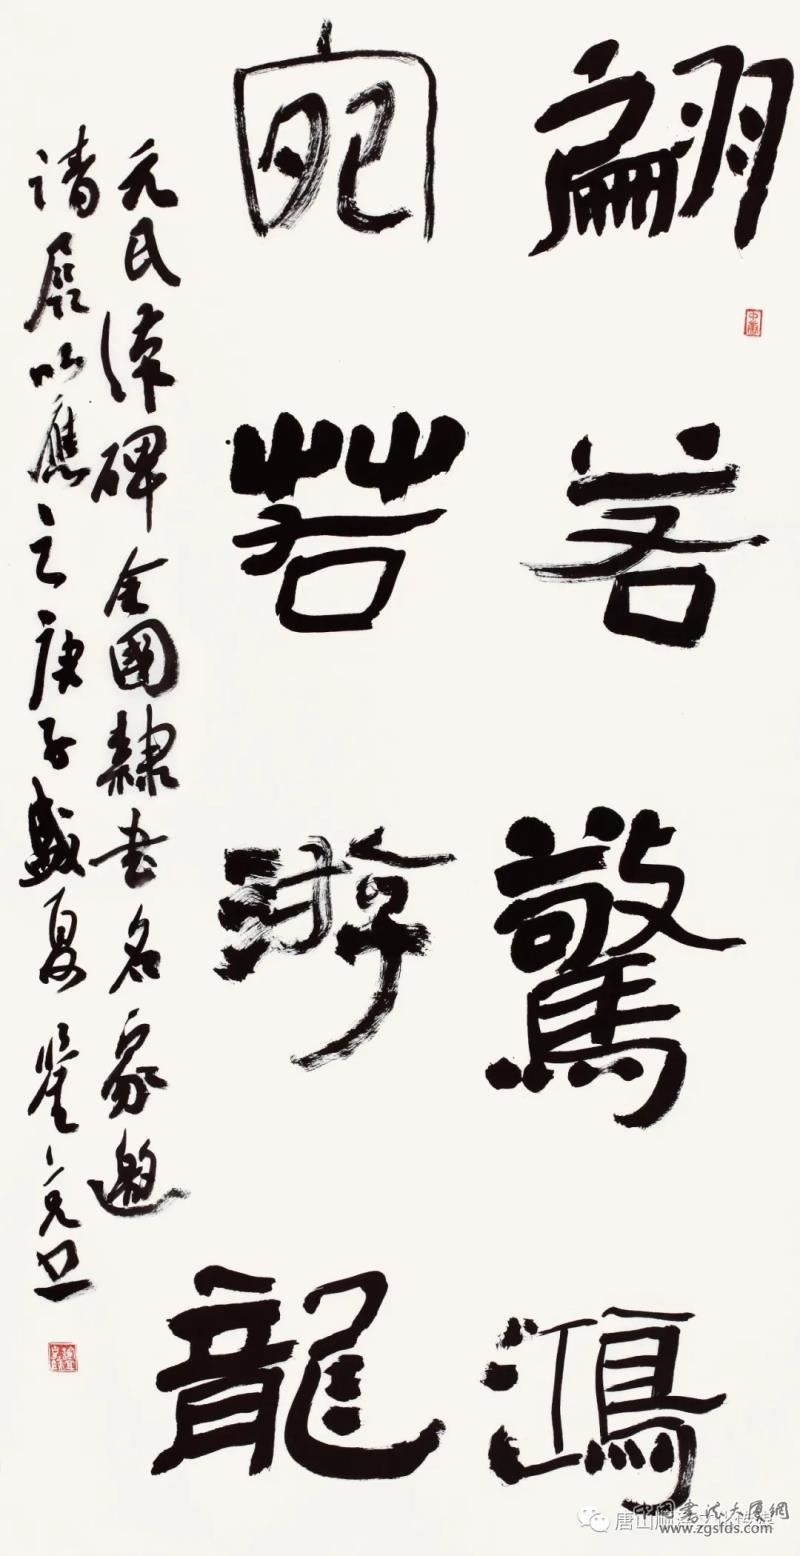 翩若驚鴻
宛若游龍
元氏漢碑全國隸書名家邀
請展以應之庚子盛夏
中國書法大厦網
www.zgsfds.com
唐山
文化传媒